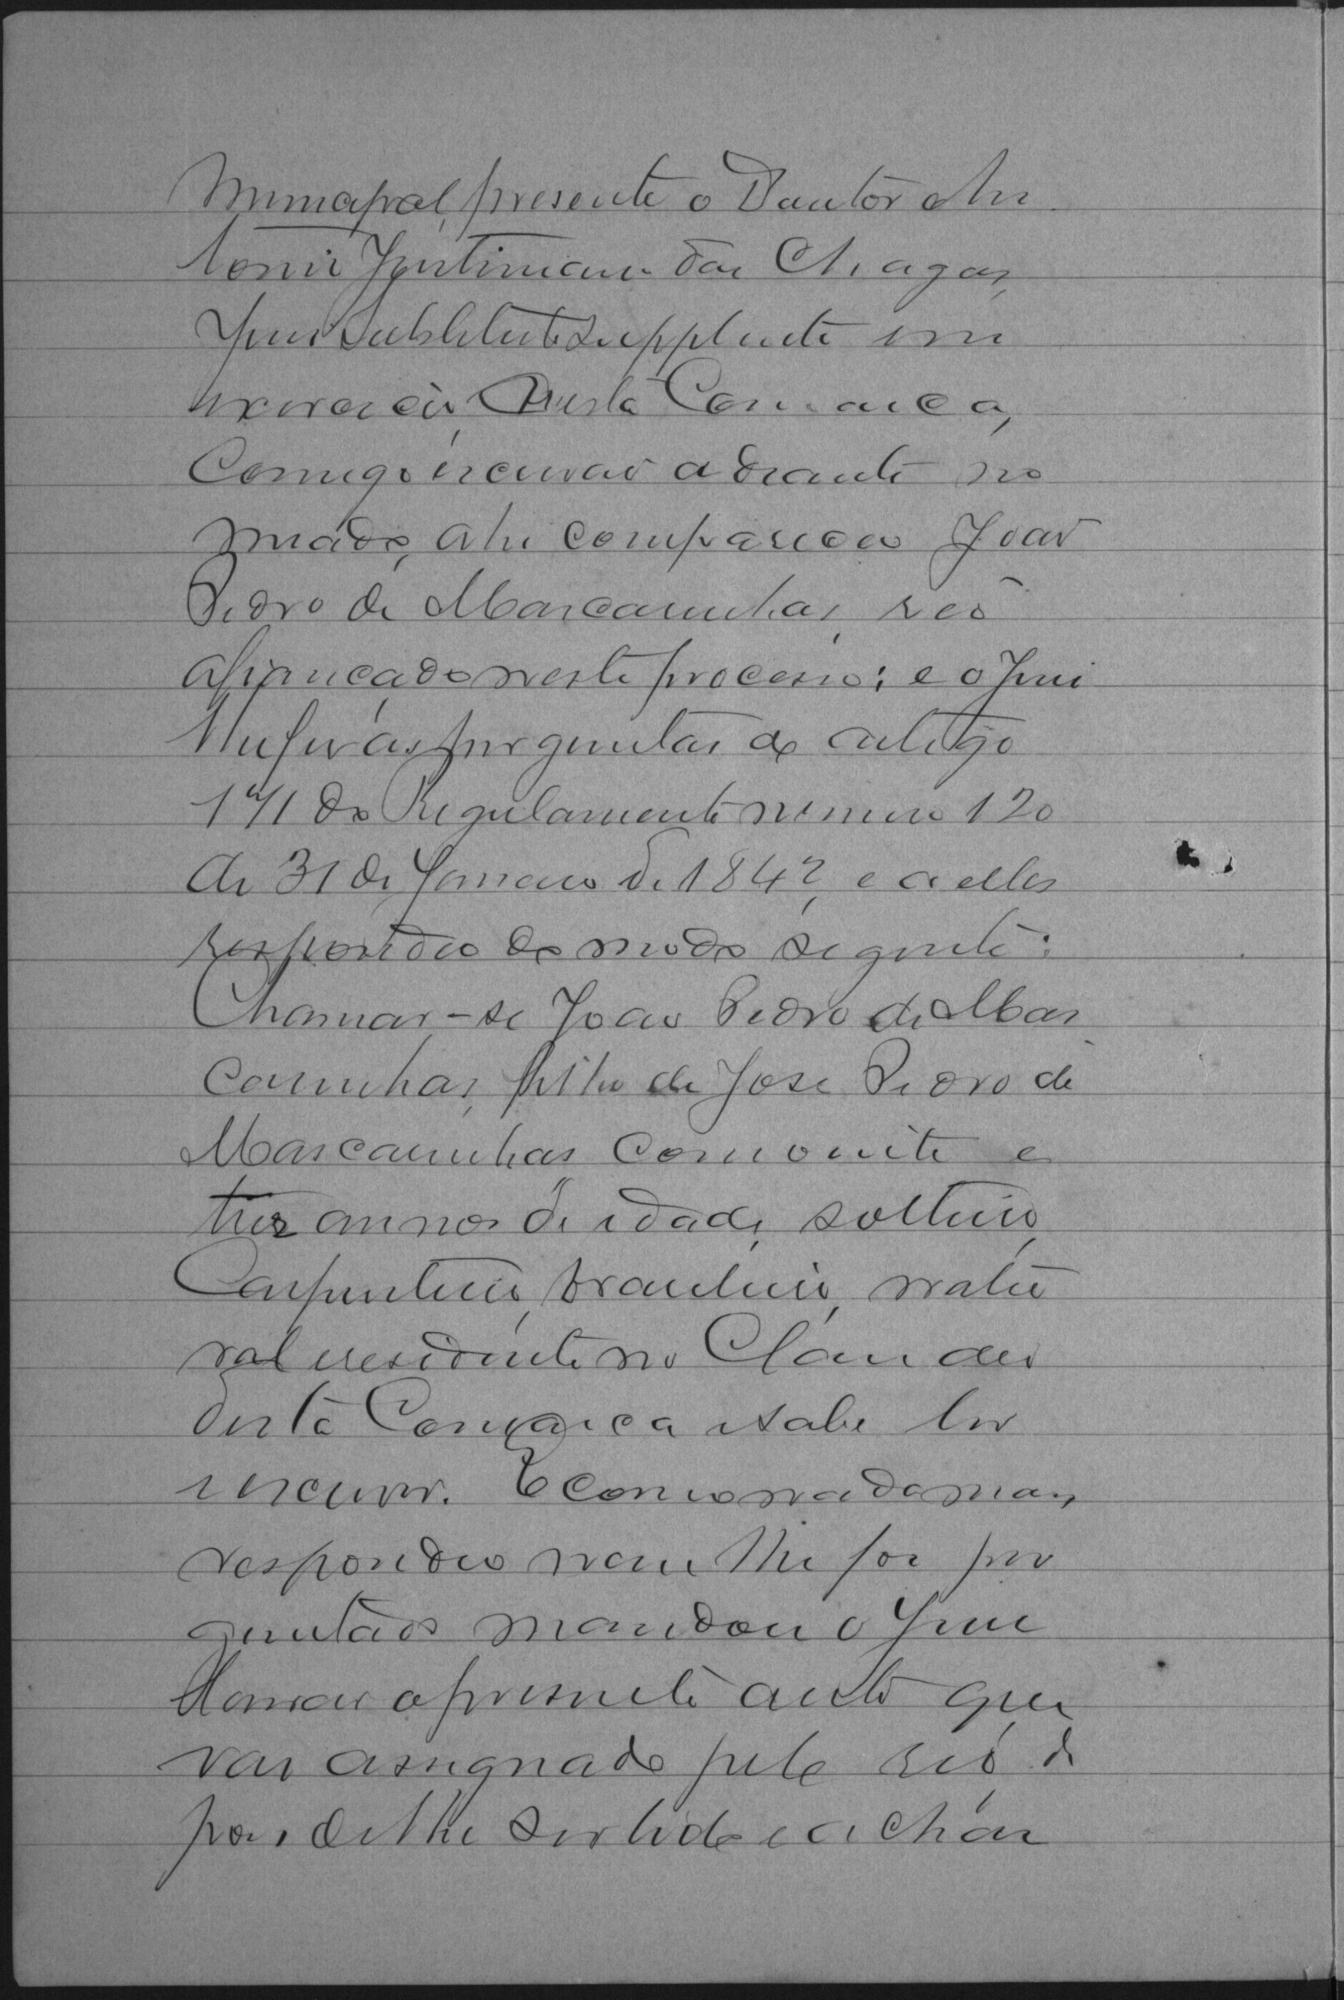 Municipal, presente o Doutor An
tonio Justiniano das Chagas,
Juiz Substituto Supplente em
exercicio, desta Comarca,
Comigo escrivão adiante no
miado, ahi compareceu João
Pedro de Mascarenhas, reo
afiançado neste processo; e o Juiz
lhe fez as perguntas do artigo
171 do Regulamento numero 120
de 31 de Janeiro de 1842, e a ellas
respondeu do modo seguinte:
Chamar-se João Pedro de Mas
carenhas, filho de José Pedro de
Mascarenhas com vinte e
tres annos de idade, solteiro,
Carpinteiro, brasileiro, natu
ral e residente no Claudio
desta Comarca e sabe ler
e escrever. E como nada mais
respondeu nem lhe foi per
guntado mandou o Juiz
lavrar o presente auto que
vai assignado pelo reo de
pois de lhe ser lido e achar